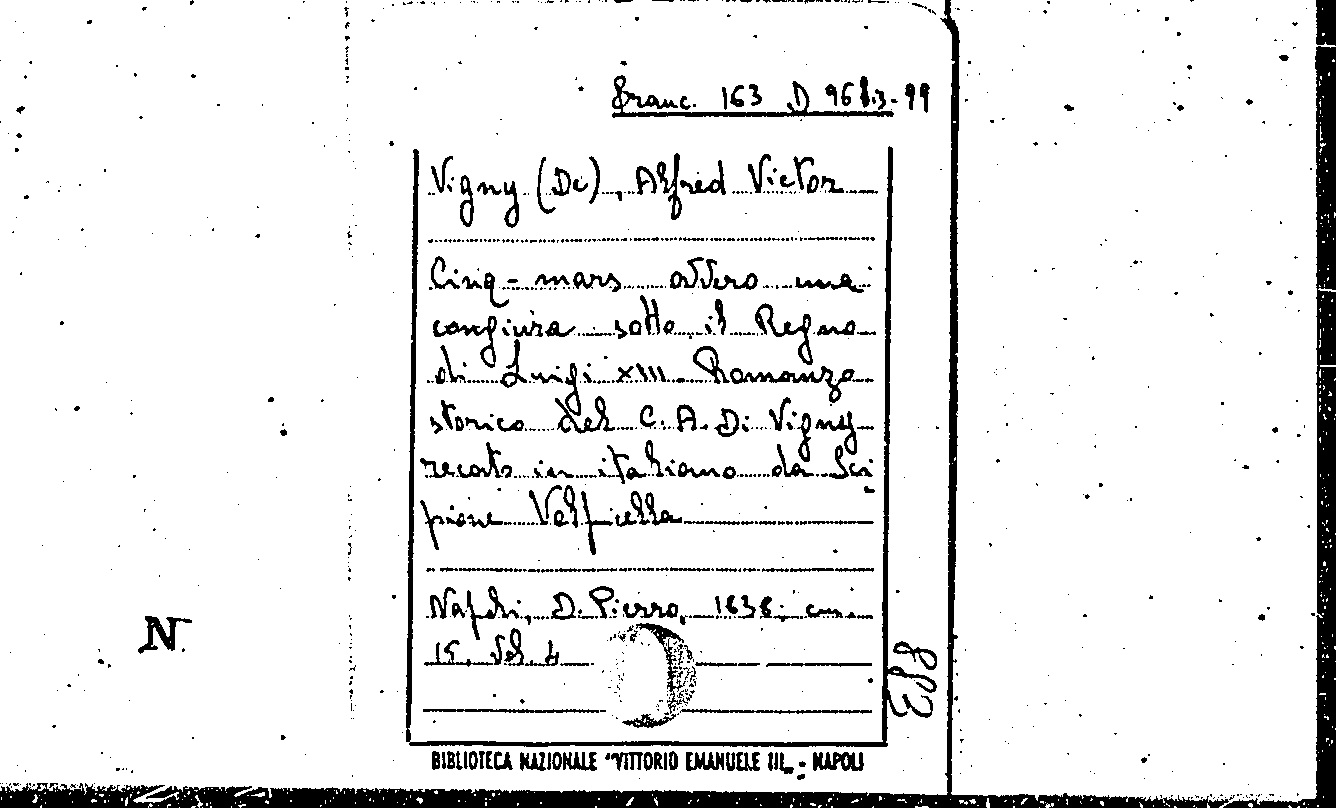 Franc. 163 D 96 8.3-99
Vigny (De), Alfred Victor
Cinq-mars ovvero una
congiura sotto il Regno
di Luigi XIII Romanzo
storico del C. A. Di Vigny
recato in italiano da Sci
pione Volpicella
Napoli, D. Pierro, 1838; cm.
15. Vol. 4
883
N
BIBLIOTECA NAZIONALE "VITTORIO EMANUELE III„ - NAPOLI